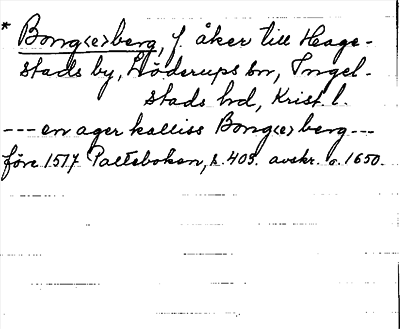 * Bong<e>berg, f. åker till Hage-
stads by, Löderups sn, Ingel-
stads hd, Krist. l.
--- en ager kalliss Bong<e>berg---
före 1517 Palteboken, s. 403. avskr. o. 1650.